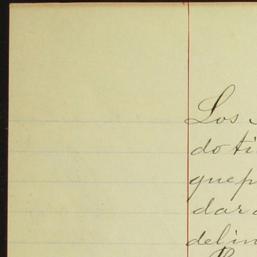 Los
do ti
quep
dar
delin